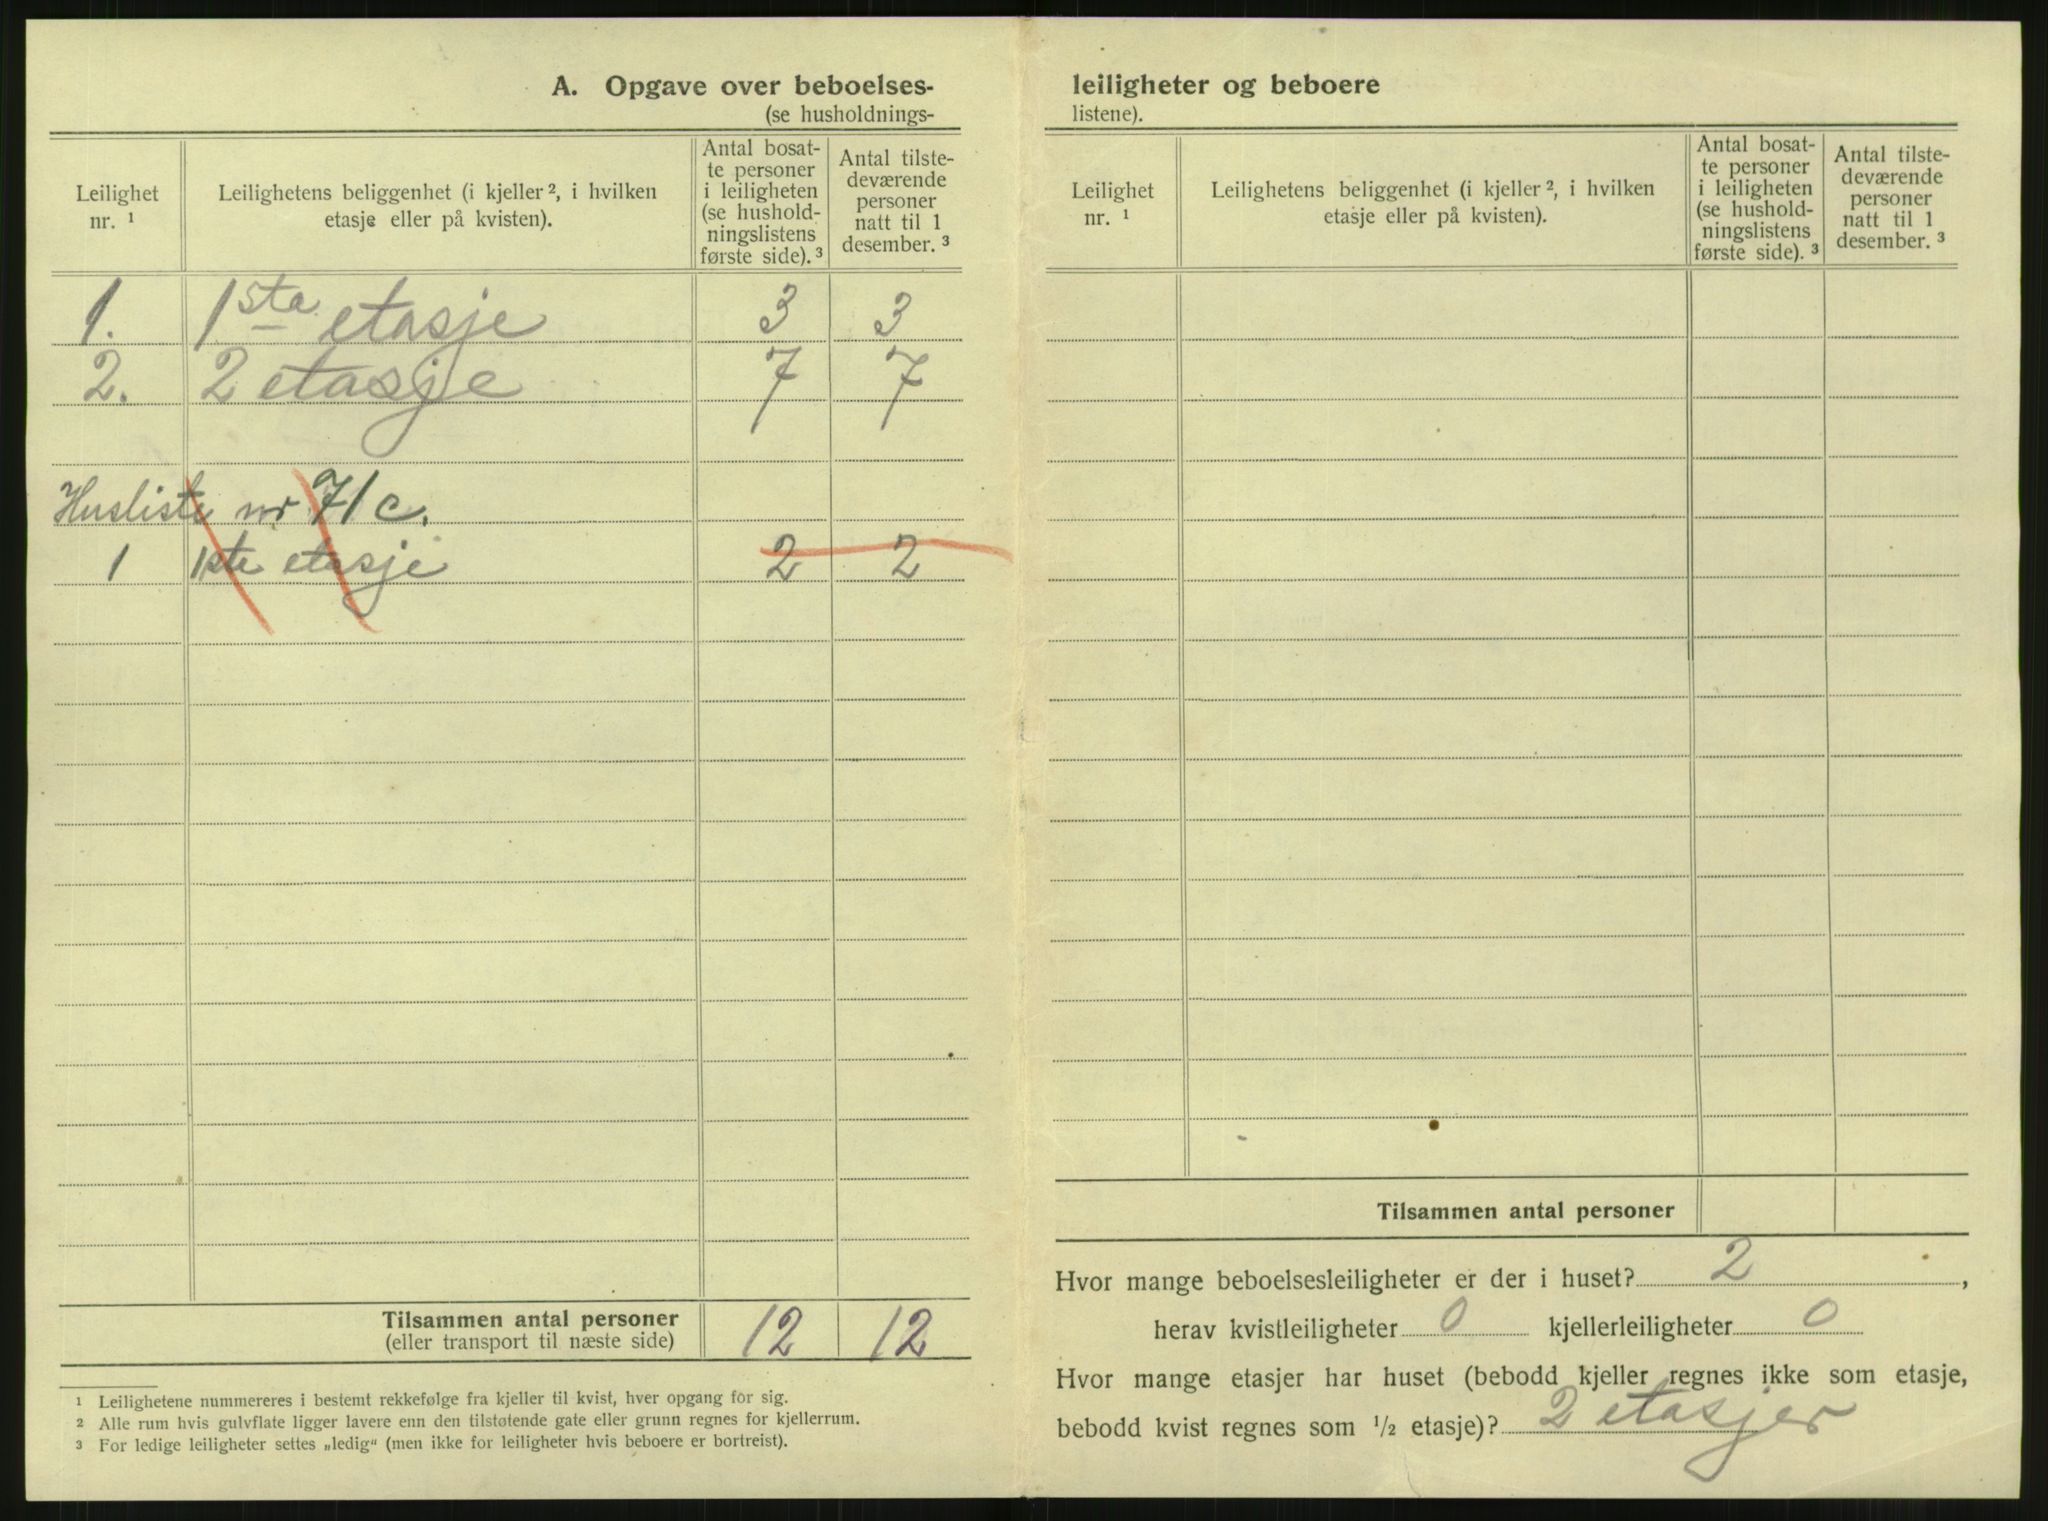 A. Opgave over beboelses-
(se husholdnings-
Leilighet nr. ¹
Leilighetens beliggenhet (i kjeller ², i hvilken etasje eller på kvisten).
Antal bosat-
te personer
i leiligheten
(se hushold-
ningslistens
første side). ³
Antal tilste-
deværende
personer
natt til 1
desember. ³
1. 1sta etasje 3 3
2. 2 etasje 7 7
Husliste nr 71c.
1 1ste etasje 2 2
Tilsammen antal personer 12 12
(eller transport til næste side)
¹ Leilighetene nummereres i bestemt rekkefølge fra kjeller til kvist, hver opgang for sig.
² Alle rum hvis gulvflate ligger lavere enn den tilstøtende gate eller grunn regnes for kjellerrum.
³ For ledige leiligheter settes „ledig“ (men ikke for leiligheter hvis beboere er bortreist).
leiligheter og beboere
listene).
Leilighet nr. ¹
Leilighetens beliggenhet (i kjeller ², i hvilken etasje eller på kvisten).
Antal bosat-
te personer
i leiligheten
(se hushold-
ningslistens
første side). ³
Antal tilste-
deværende
personer
natt til 1
desember. ³
Tilsammen antal personer
Hvor mange beboelsesleiligheter er der i huset? 2,
herav kvistleiligheter 0 kjellerleiligheter 0
Hvor mange etasjer har huset (bebodd kjeller regnes ikke som etasje,
bebodd kvist regnes som ½ etasje)? 2 etasjer